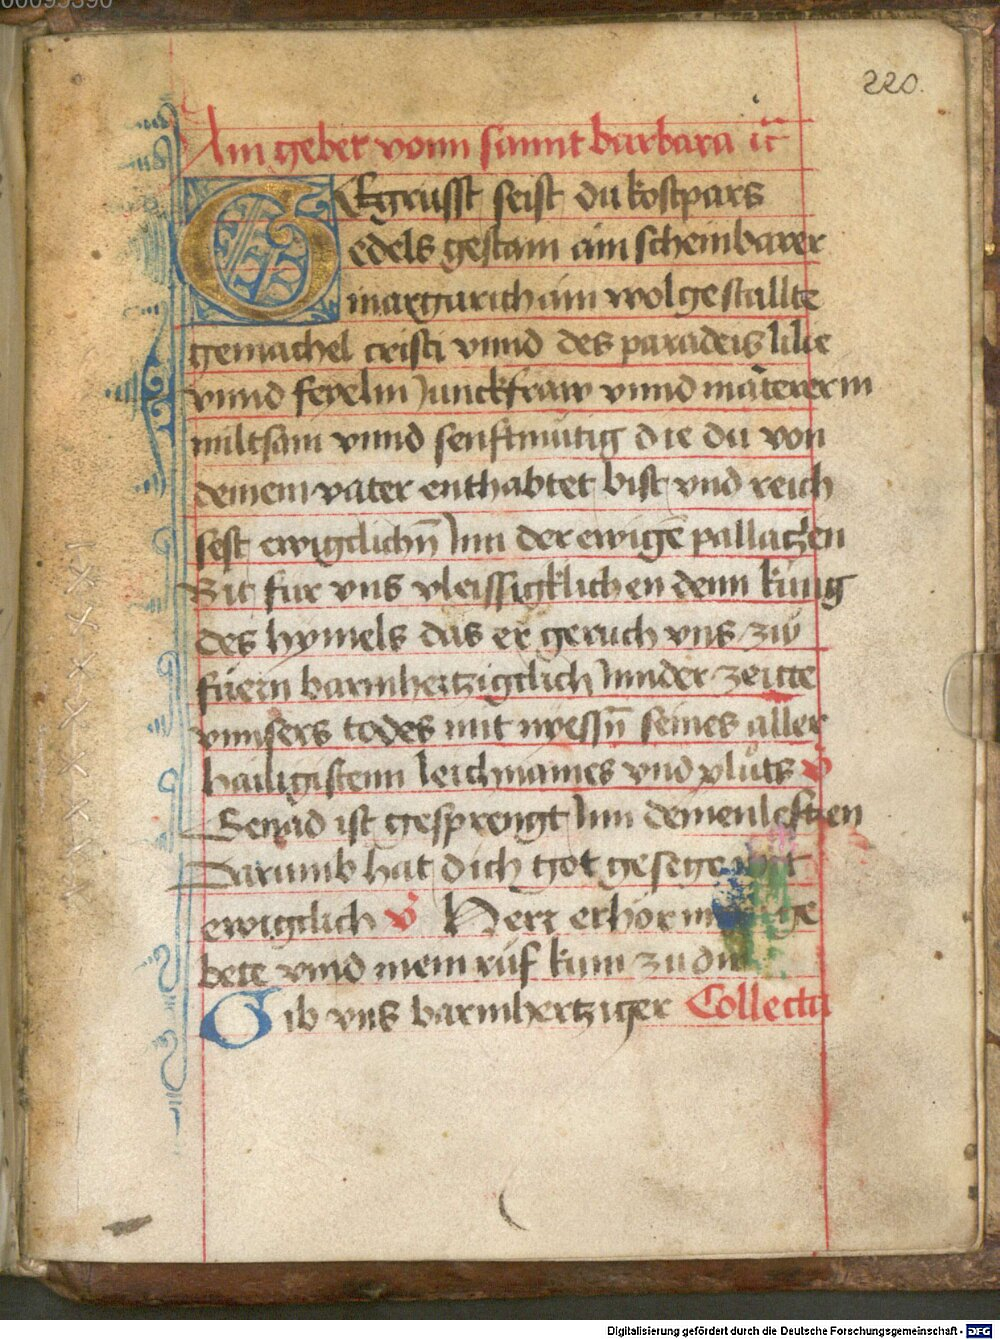 00095390
220.
Ain gebet vonn sannt barbara ic̃
GEgrüsst seist du kostpars
edels gestain ain scheinbarer
margarith ain wolgestallte
gemachel cristi vnnd des paradeis lilie
vnnd feyelin Junckfraw vnnd matererin
miltsam vnnd senftmütig die du von
deinem vater enthabtet bist vnd reich
sest ewigclichn̄ Inn der ewigē pallatzen
Bit für vns vleissigklichen denn künig
des hymels das er geruch vns zw
füern barmhertzigclich Jnn der zeitte
vnnsers todes mit wessn̄ seines aller
hailigistenn leichnames vnd plüts v̄
Genad ist gesprengt Inn deinen lefftzen
Darumb hat dich got gesegent
ewigclich v̄ Herr erhör mein ge
bete vnnd mein rüf kum zu dir
Gib vns barmhertziger Collecta
Digitalisierung gefördert durch die Deutsche Forschungsgemeinschaft - DFG